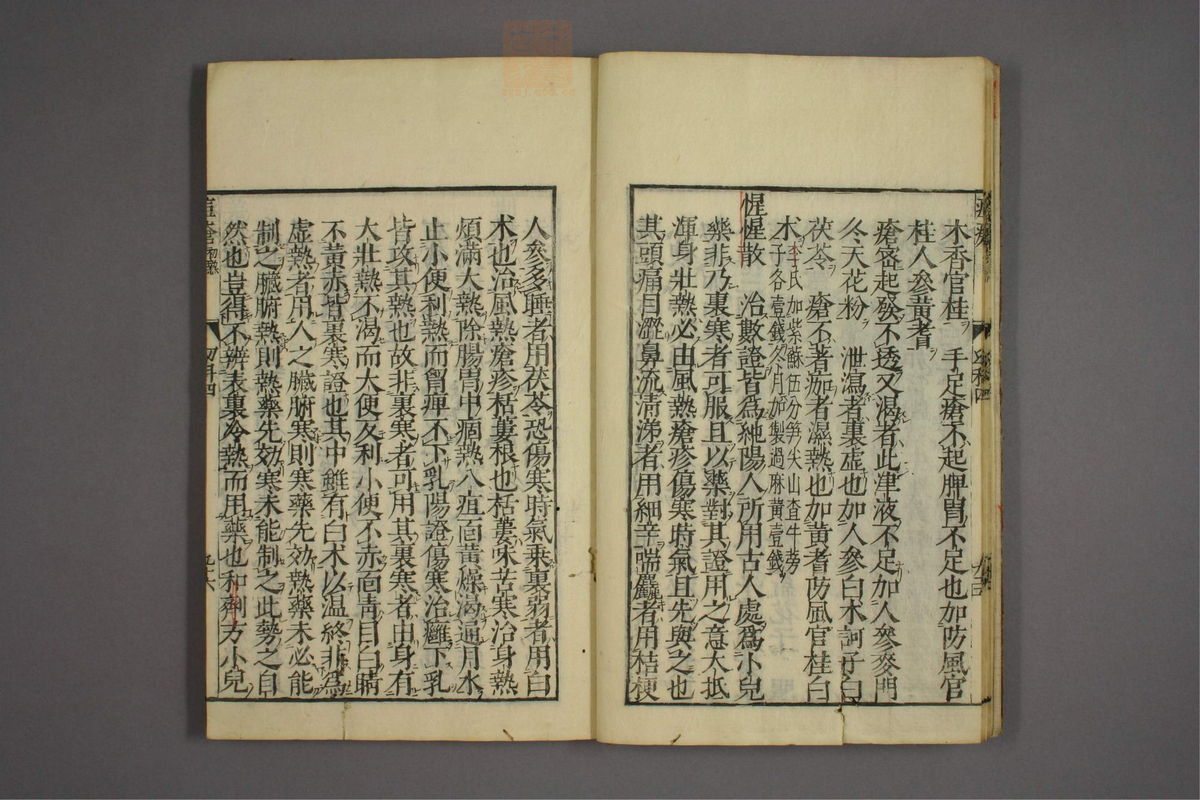 木香官桂　手足瘡不起脾胃不足也加防風官
桂人參黃耆
瘡密起發不透又渴者此津液不足加人參麥門
冬天花粉　泄瀉者裏虛也加人參白朮訶子白
茯苓　瘡不著痂者濕熱也加黃耆防風官桂白
朮李氏加紫蘇伍分笋尖山査牛蒡
子各壹錢冬月加製過麻黃壹錢
惺惺散　治數證皆爲純陽人所用古人處爲小兒
藥非乃裏寒者可服且以藥對其證用之意大抵
渾身壯熱必由風熱瘡疹傷寒時氣且先與之也
其頭痛目澀鼻流清涕者用細辛喘麤者用桔梗
人參多睡者用茯苓恐傷寒時氣乘裏弱者用白
朮也治風熱瘡疹栝蔞根也栝蔞味苦寒治身熱
煩滿大熱除腸胃中痼熱八疸面黃燥渴通月水
止小便利熱而曾痺不下乳陽證傷寒治癰下乳
皆攻其熱也故非裏寒者可用其裏寒者由身有
大壯熱不渴而大便反利小便不赤面靑目白睛
不黃赤皆裏寒證也其中雖有白朮以温終非爲
虛熱者用人之臟腑寒則寒藥先効熱藥未必能
制之臟腑熱則熱藥先効寒未能制之此勢之自
然也豈得不辨表裏冷熱而用藥也和劑方小兒